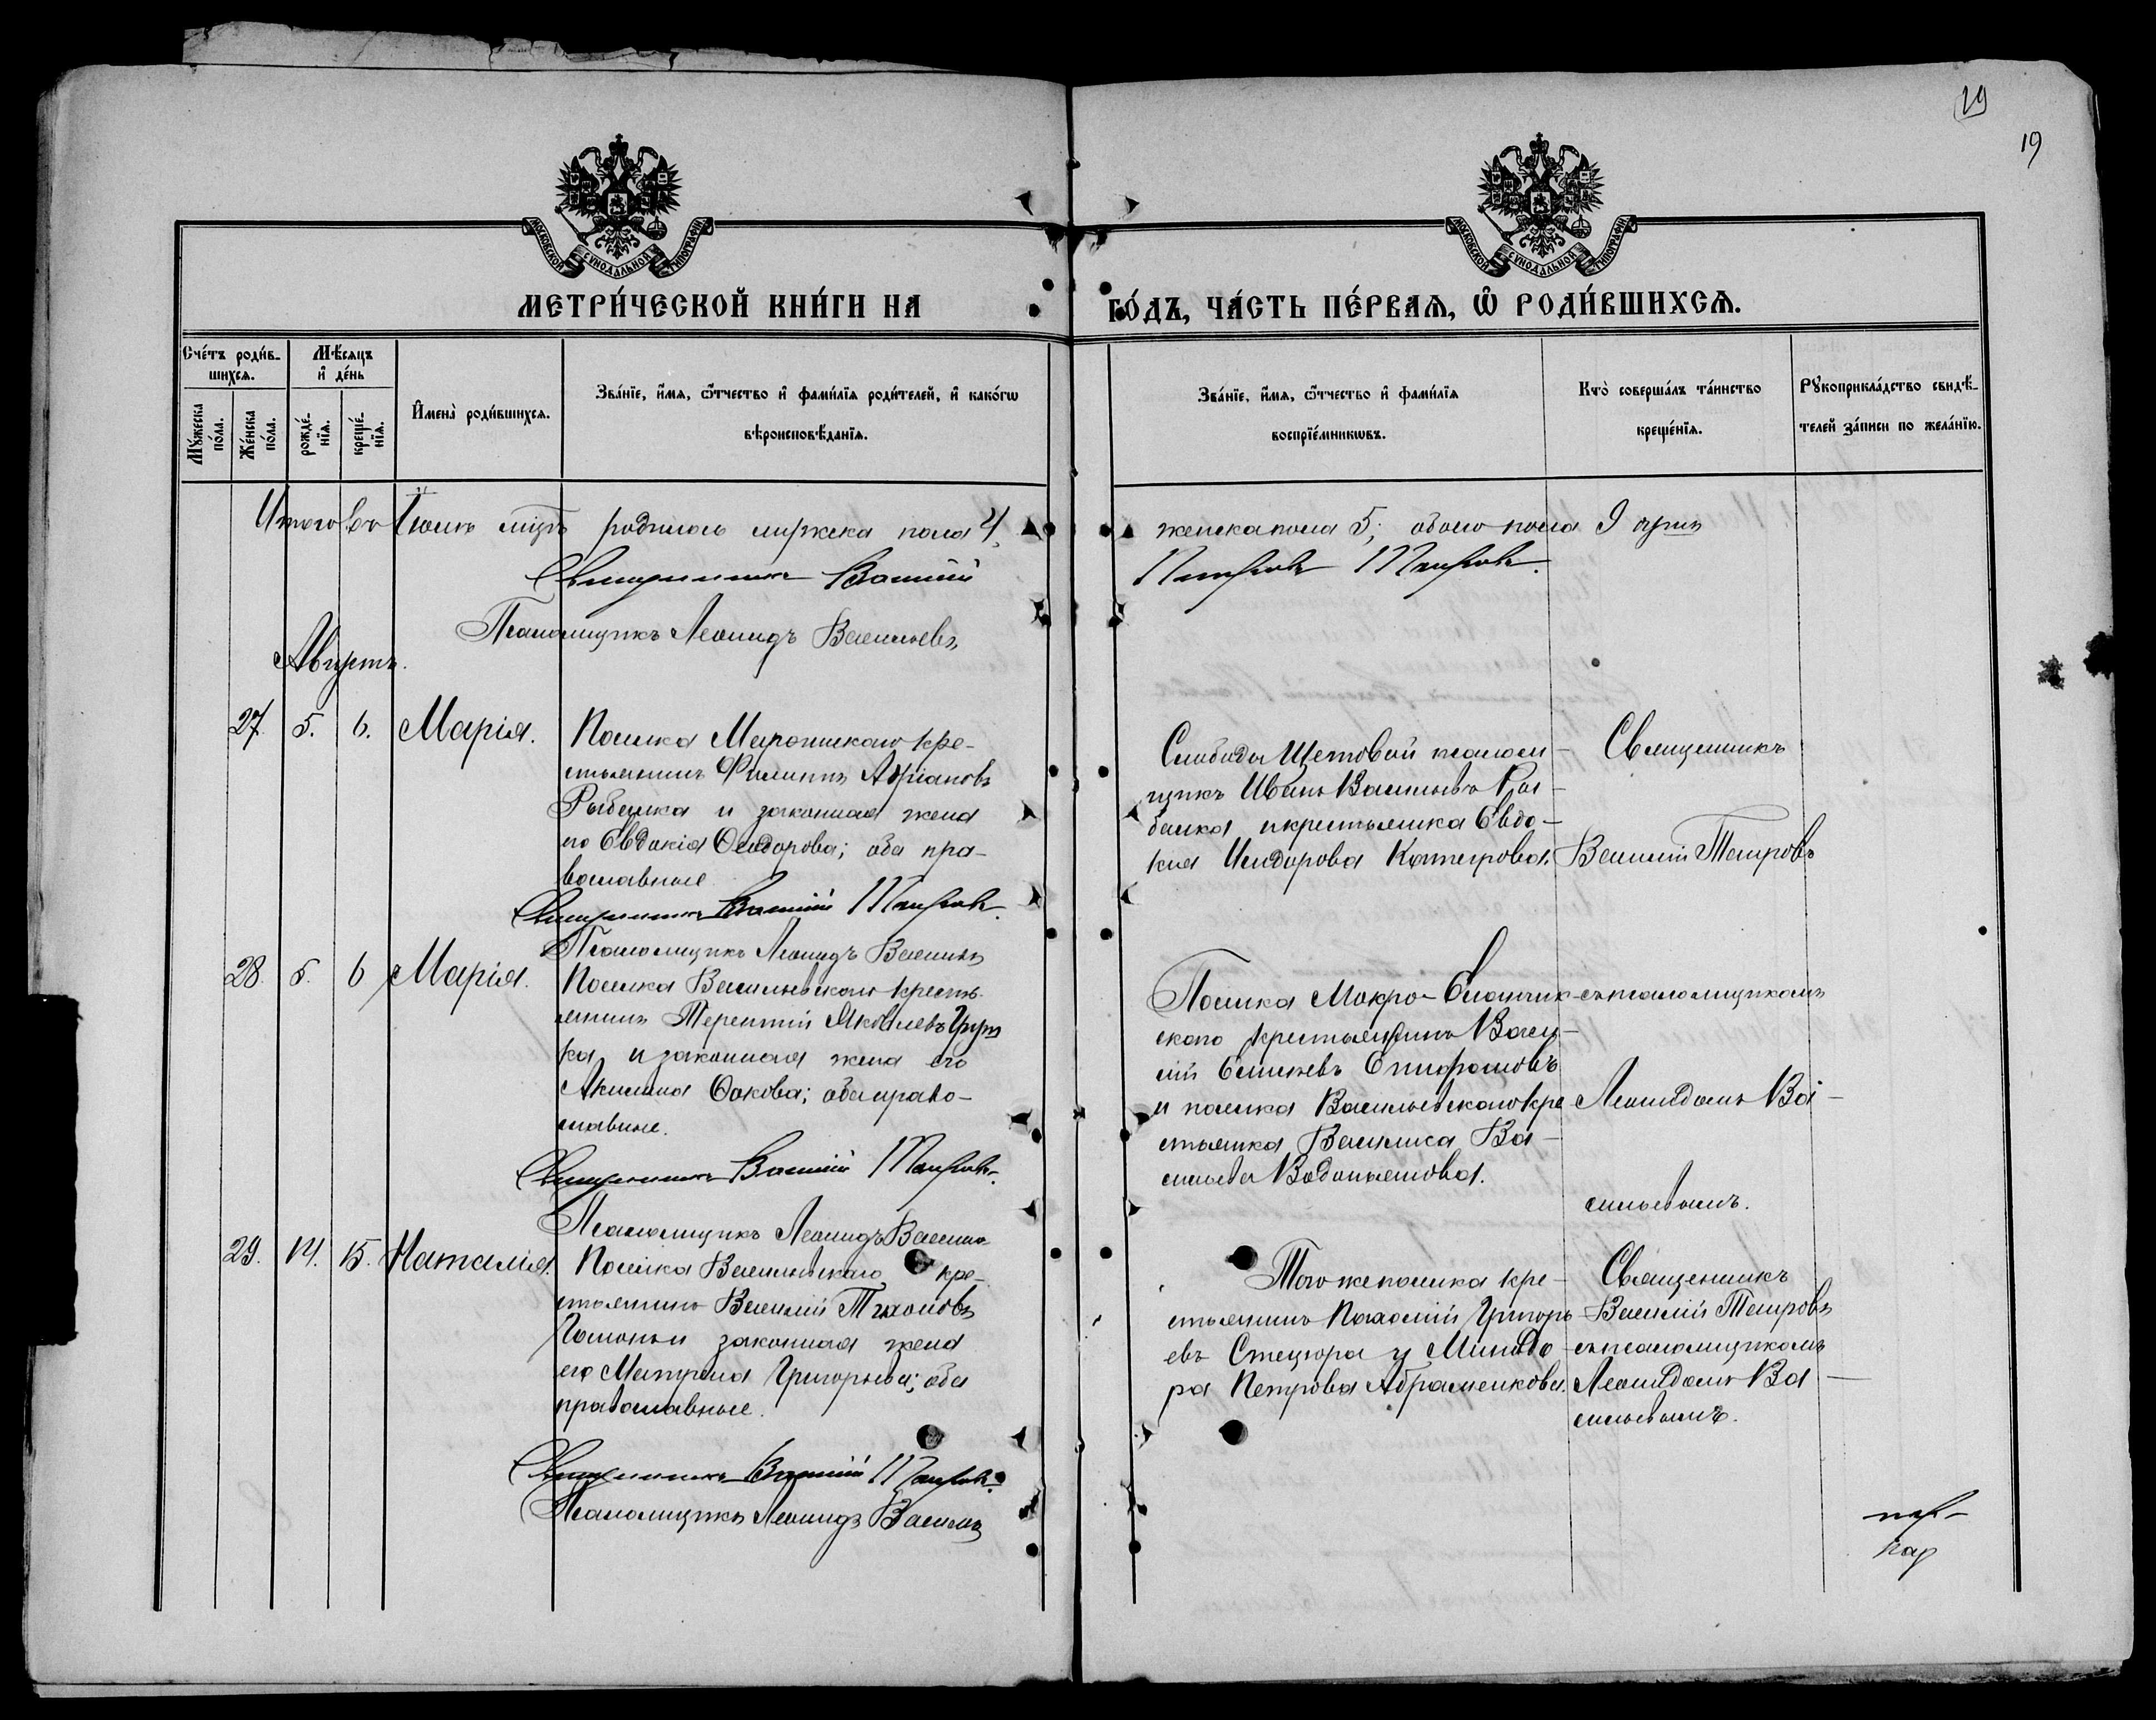 19
19
МОСКОВСКОЙ СУНОДАЛЬНОЙ ТИПОГРАФІИ
МОСКОВСКОЙ СУНОДАЛЬНОЙ ТИПОГРАФІИ
МЕТРИ́ЧЕСКОЙ КНИ́ГИ НА
ГО́ДЪ, ЧА́СТЬ ПЕ́РВАѦ, Ѡ РОДИ́ВШИХСѦ.
Сче́тъ роди́вшихсѧ.
Мѣ́сѧцъ и҆ де́нь
Мꙋ́жеска по́ла.
Же́нска по́ла.
рожде́нїѧ.
креще́нїѧ.
И҆мена̀ роди́вшихсѧ.
Зва́нїе, и҆́мѧ, ѻ҆́тчество и҆ фами́лїѧ роди́телей, и҆ како́гѡ
вѣроисповѣ́данїѧ.
Зва́нїе, и҆́мѧ, ѻ҆́тчество и҆ фами́лїѧ
воспрїе́мникѡвъ.
Кто̀ соверша́лъ та́инство
креще́нїѧ.
Рꙋкоприкла́дство свидѣ́-
телей за́писи по жела́нїю.
Итого во Іюлѣ мцѣ родилось мужеска пола 4,
женска пола 5; обоего пола 9 душъ
Священникъ Василій
Петровъ
Псаломщикъ Леонидъ Васильевъ
Августъ.
27. 5. 6. Марія.
Поселка Миронискаго кре-
стьянинъ Филиппъ Адріановъ
Рыбалка и законная жена
его Евдокія Ѳеодорова; оба пра-
вославные
Священникъ Василій
Псаломщикъ Леонидъ Васильевъ
Слободы Щетовой псалом-
щикъ Иванъ Васильевъ Ры-
балка и крестьянка Евдо-
кія Исидорова
Священникъ
Василій Петровъ
28. 5. 6 Марія.
Поселка Васильевскаго кресть-
янинъ Терентій Яковлевъ
и законная жена его
Акилина; оба право-
славные.
Священникъ Василій
Псаломщикъ Леонидъ Васильевъ
Поселка Мокро-Еланчик-
скаго крестьянинъ Васи-
лій Епифановъ
и поселка Васильевскаго кре
стьянка Василиса Ва-
сильева Водопьянова.
съ псаломщикомъ
Леонидомъ Ва-
сильевымъ.
29. 14. 15. Наталія.
Поселка Васильевскаго кре-
стьянинъ Василій Тихоновъ
и законная жена
его Матрона Григорьева; оба
православные.
Священникъ Василій
Псаломщикъ Леонидъ Васильевъ
Того же поселка кре-
стьянинъ Пахомій Григорь
евъ Стецюра и Минодо-
ра Петрова Абраменкова.
Священникъ
Василій Петровъ
съ псаломщикомъ
Леонидомъ Ва-
сильевымъ.